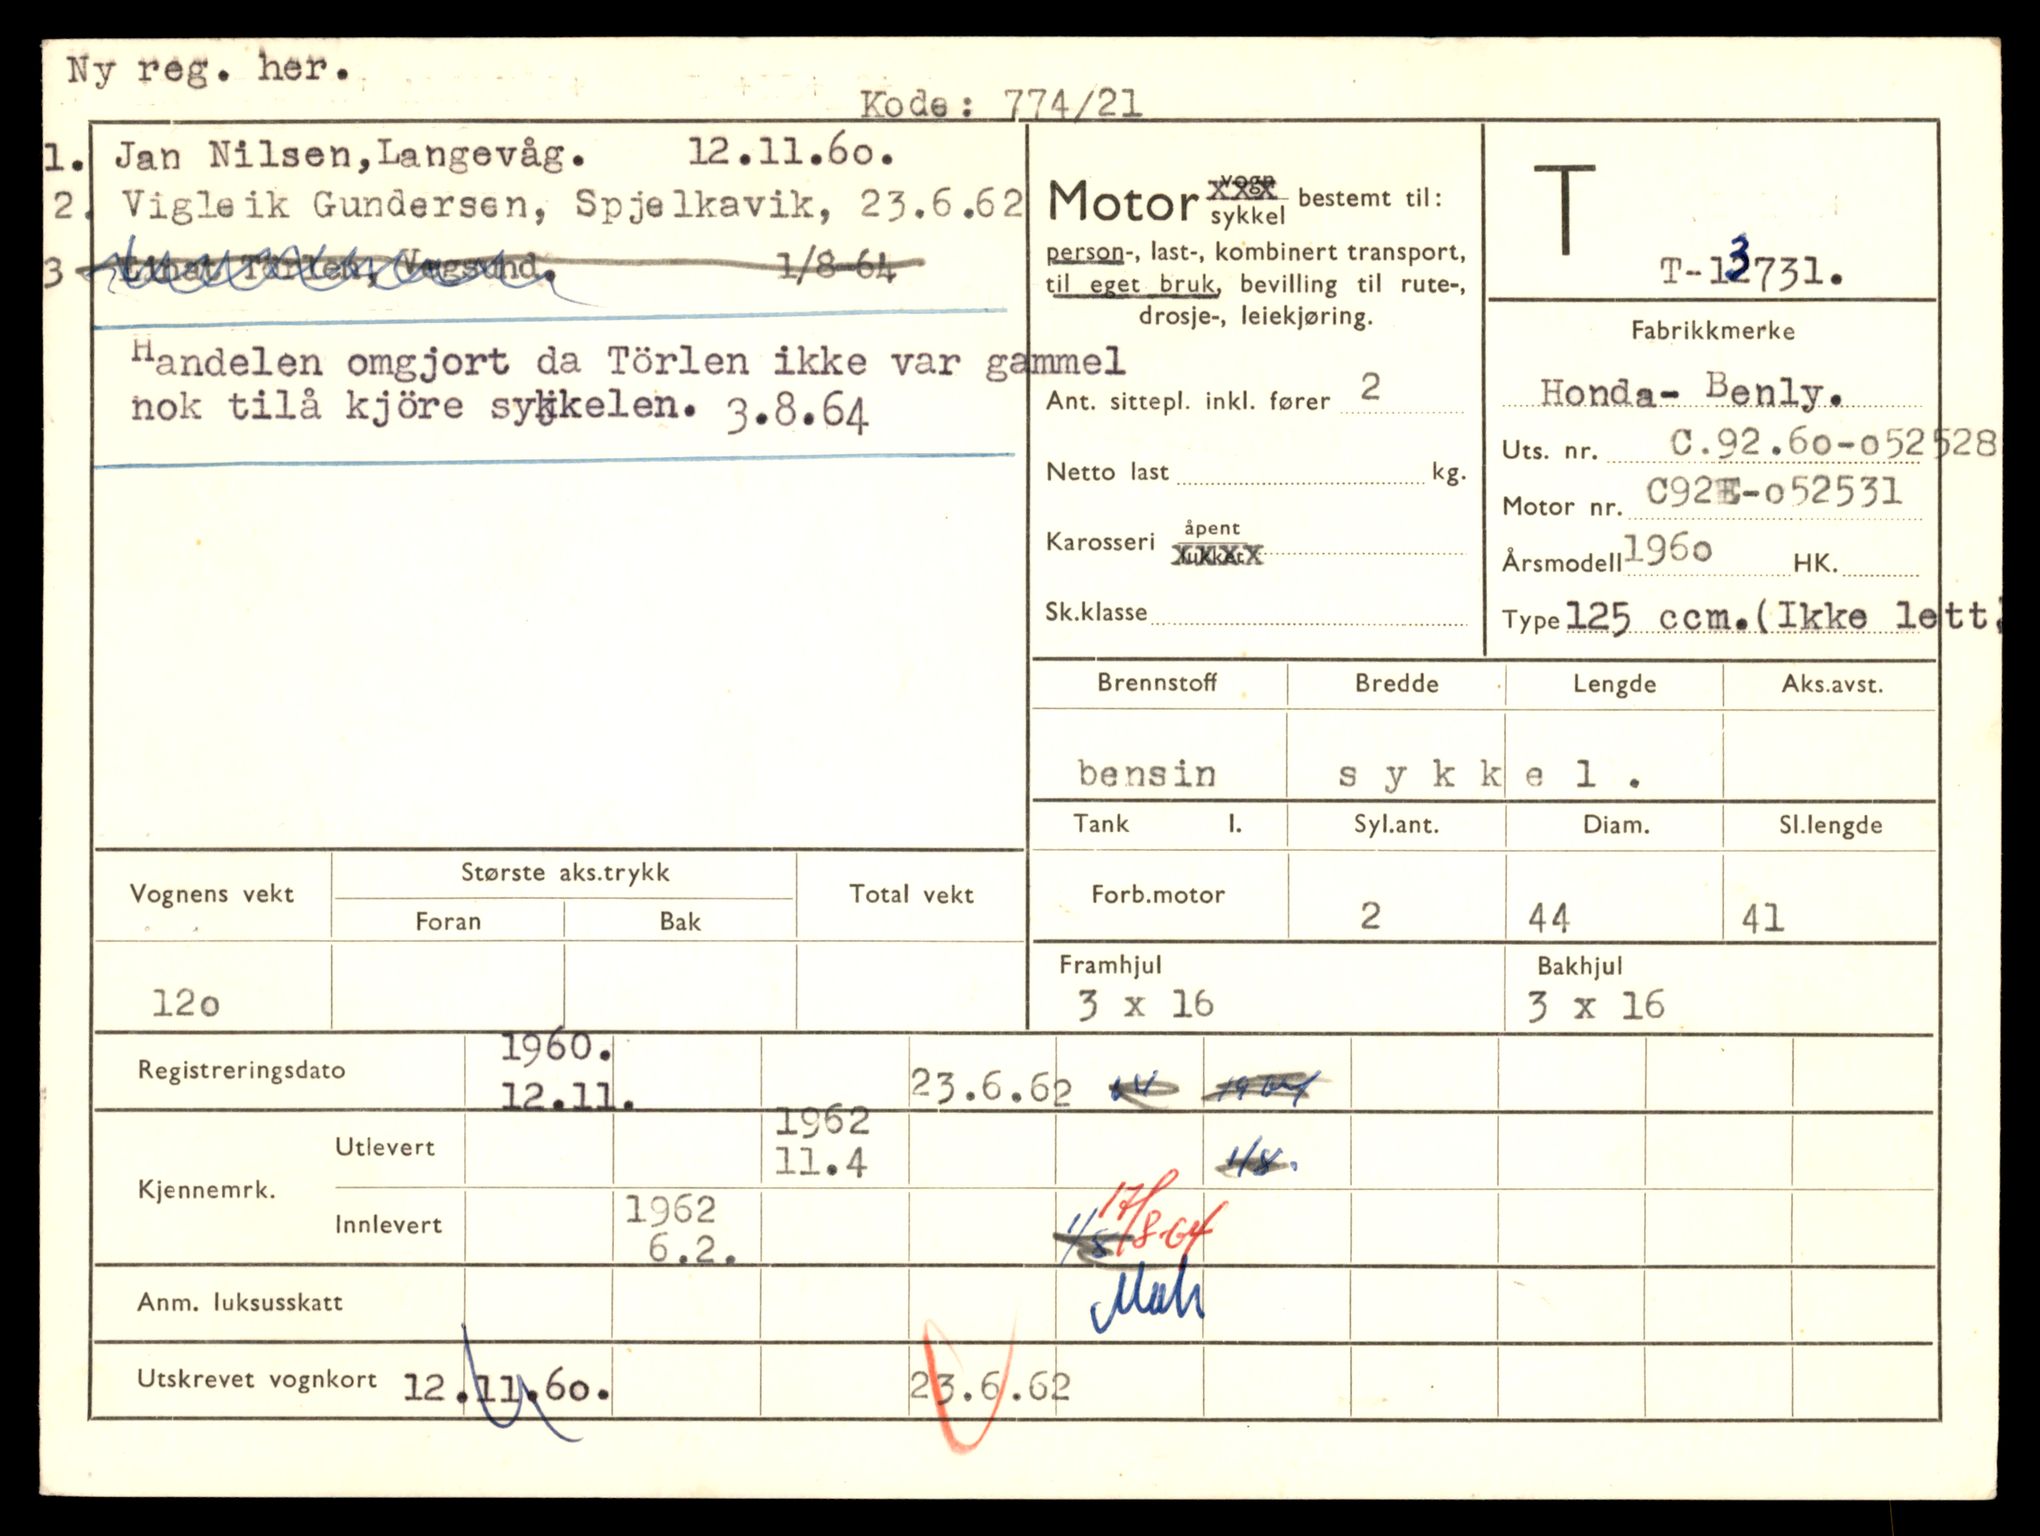 Ny reg. her.
Kode: 774/21
1. Jan Nilsen,Langevåg. 12.11.6o.
2. Vigleik Gundersen, Spjelkavik, 23.6.62
3 Törlen, Vegsund. 1/8-64
Handelen omgjort da Törlen ikke var gammel
nok tilå kjöre sykkelen. 3.8.64
Motor vogn sykkel bestemt til:
person-, last-, kombinert transport,
til eget bruk, bevilling til rute-,
drosje-, leiekjøring.
Ant. sittepl. inkl. fører 2
Netto last kg.
Karosseri åpent lukket
Sk.klasse
T
T-13731.
Fabrikkmerke
Honda- Benly.
Uts. nr. C.92.6o-o52528
Motor nr. C92E-o52531
Årsmodell 196o HK.
Type 125 ccm.(Ikke lett.
Brennstoff Bredde Lengde Aks.avst.
bensin s y k k e l .
Tank l. Syl.ant. Diam. Sl.lengde
Forb.motor 2 44 41
Framhjul Bakhjul
3 x 16 3 x 16
Vognens vekt Største aks.trykk Total vekt
Foran Bak
12o
Registreringsdato 1960. 12.11. 23.6.62 64 1964
Kjennemrk. Utlevert 1962 11.4 1/8.
Innlevert 1962 6.2. 1/8 17/8-64
Anm. luksusskatt
Utskrevet vognkort 12.11.6o. 23.6.62